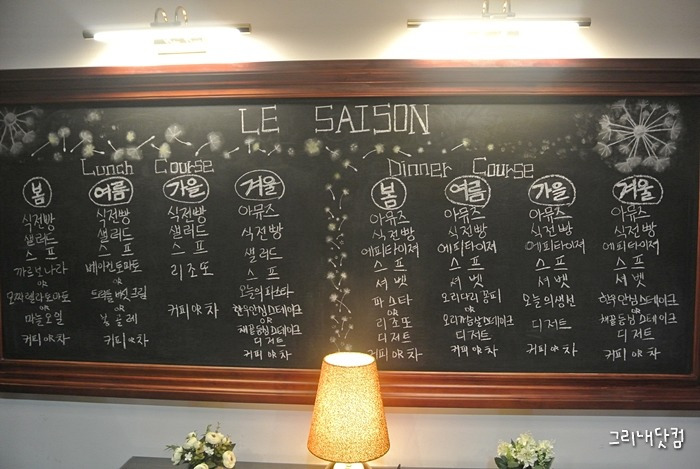 LE SAISON
Lunch Course
봄
식전빵
샐러드
스프
까르보나라
OR
모짜렐라토마토
OR
마늘오일
커피 OR 차
여름
식전빵
샐러드
스프
베이컨토마토
OR
OR
봉골레
커피 OR 차
가을
식전빵
샐러드
스프
리조또
커피 OR 차
겨울
아뮤즈
식전빵
샐러드
스프
오늘의 파스타
OR
한우안심스테이크
OR
채끝등심스테이크
디저트
커피 OR 차
Dinner Course
봄
아뮤즈
식전빵
에피타이져
스프
셔벳
파스타
OR
리조또
디저트
커피 OR 차
여름
아뮤즈
식전빵
에피타이져
스프
셔벳
오리다리콩피
OR
오리가슴살스테이크
디저트
커피 OR 차
가을
아뮤즈
식전빵
에피타이져
스프
셔벳
오늘의생선
디저트
커피 OR 차
겨울
아뮤즈
식전빵
에피타이져
스프
셔벳
한우안심스테이크
OR
채끝등심스테이크
디저트
커피 OR 차
그리내닷컴